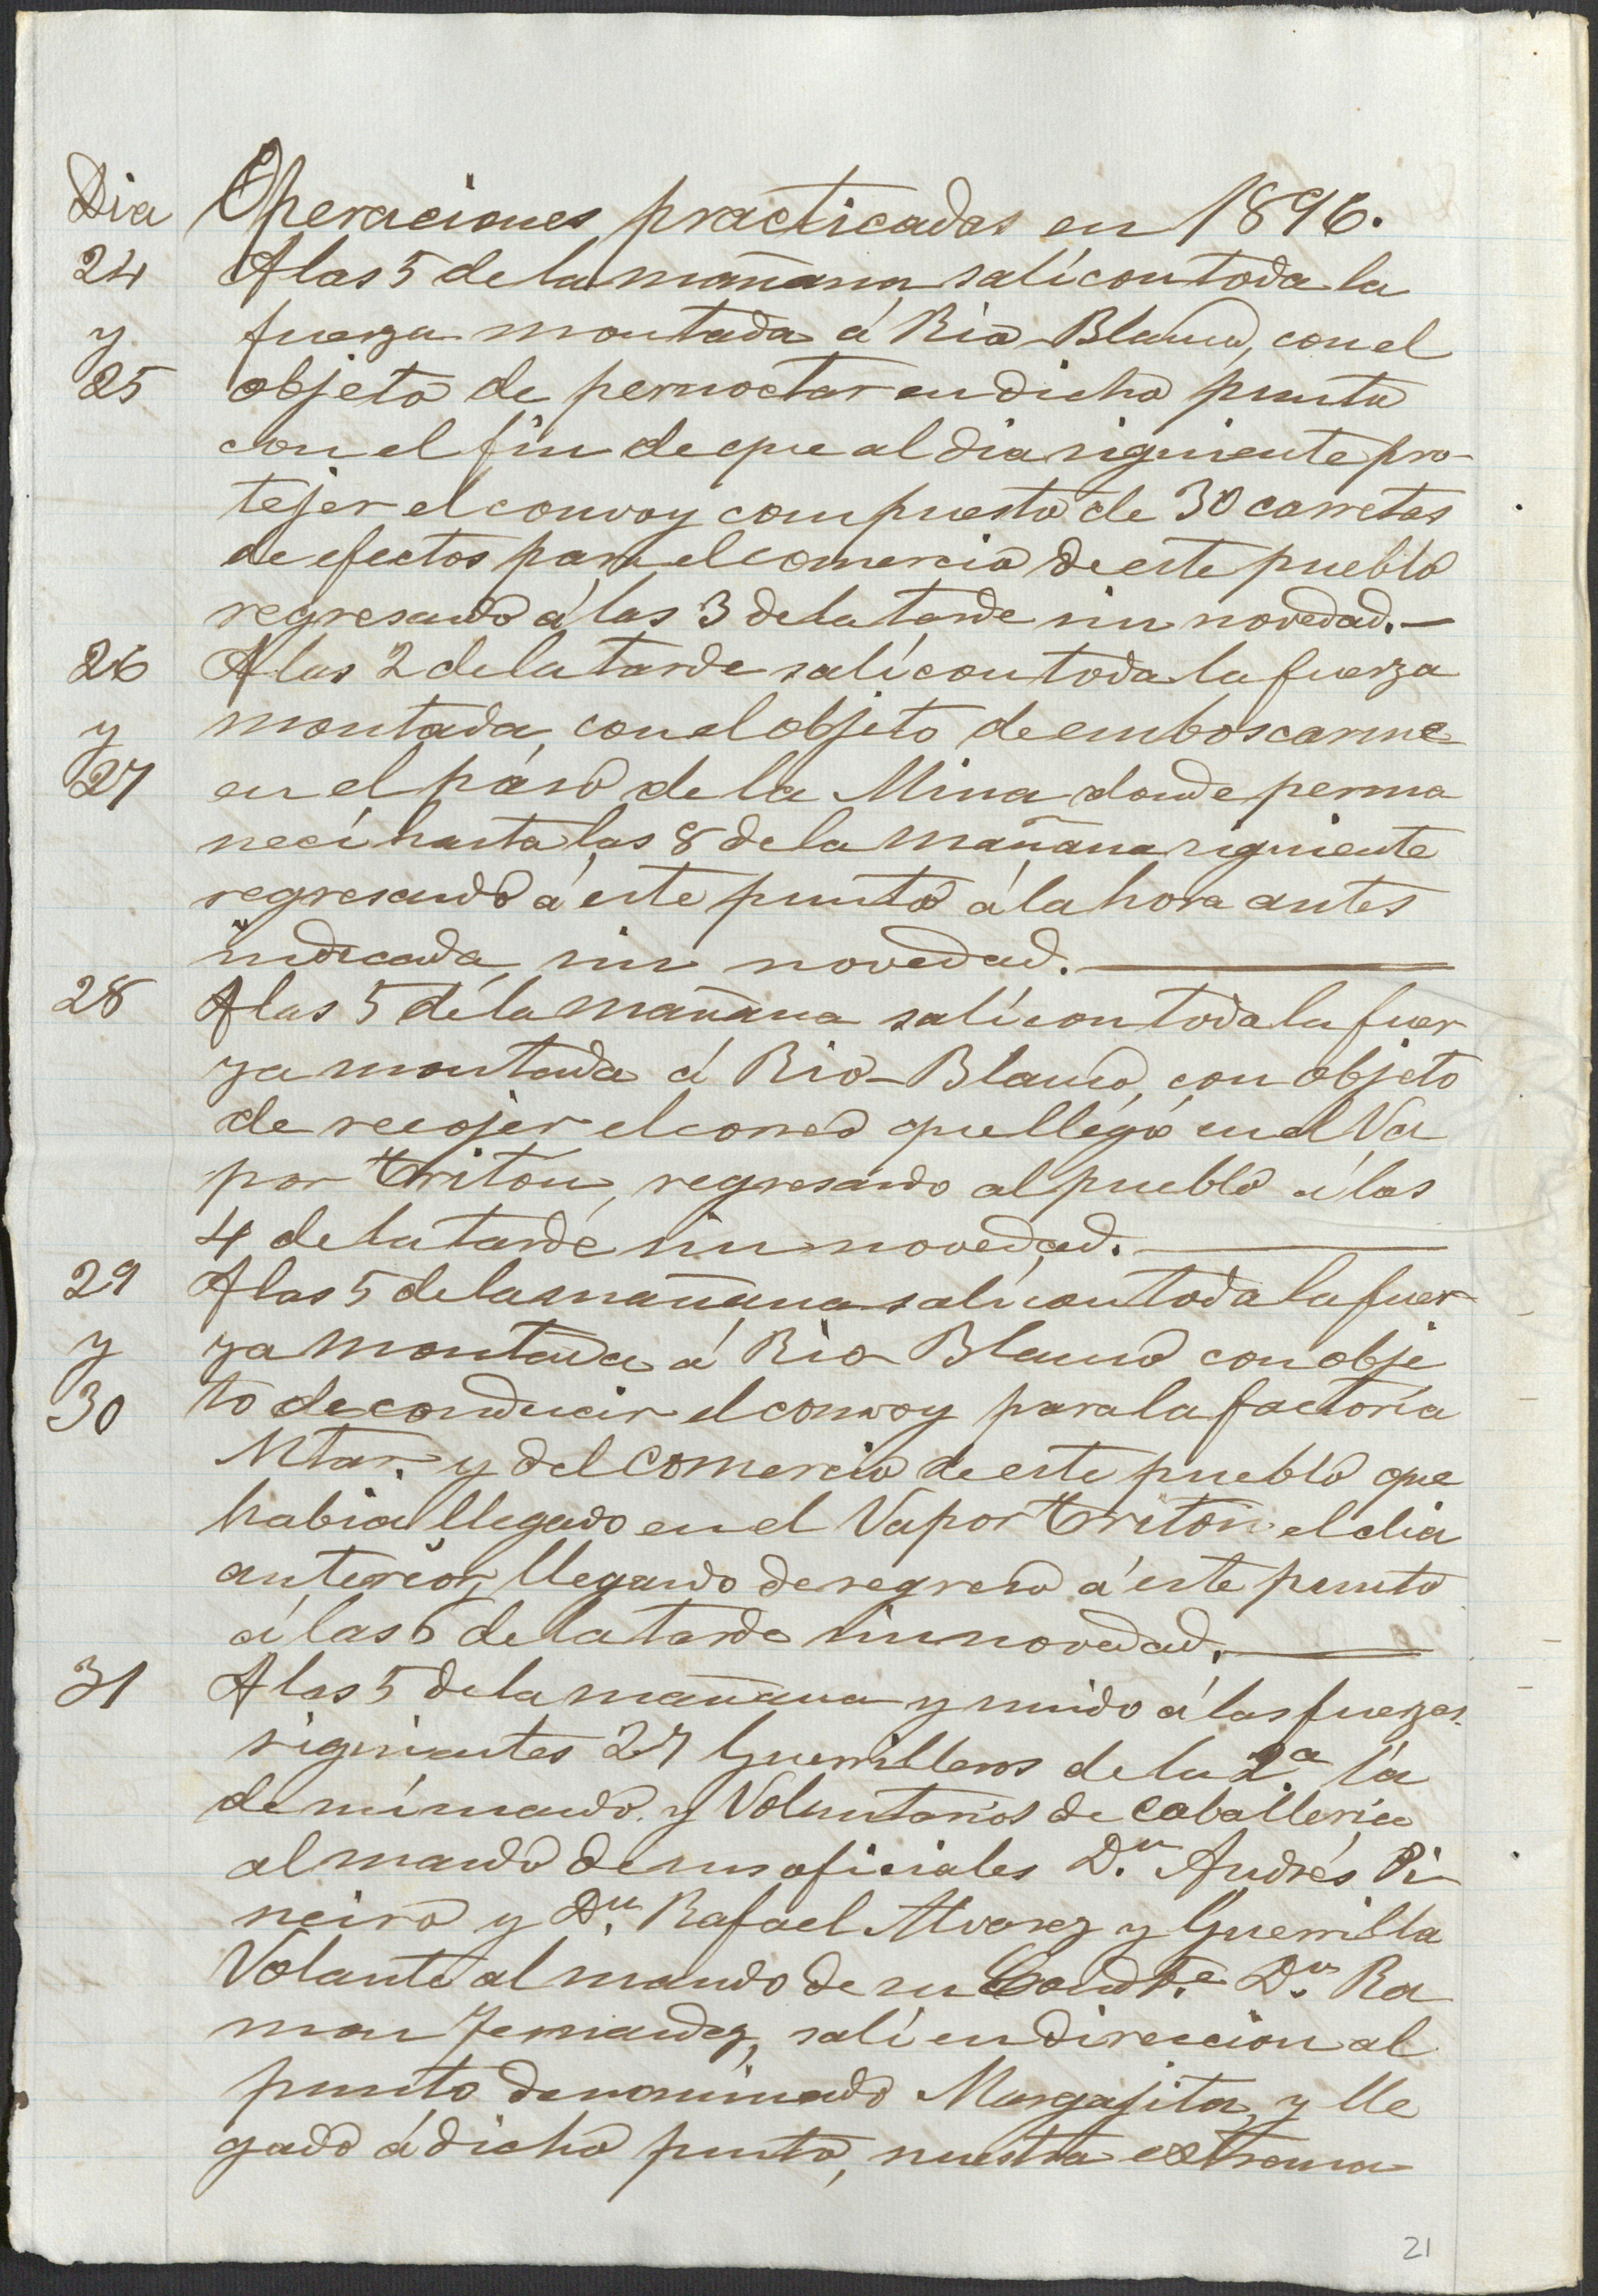 Dia Operaciones practicadas en 1896.
24 A las 5 de la mañana, salí con toda la
y fuerza montada á Rio-Blanco, con el
25 objeto de pernoctar en dicho punto
con el fin de que al dia siguiente pro-
tejer el convoy compuesto de 30 carretas
de efectos para el comercio de este pueblo
regresando á las 3 de la tarde sin novedad.—
26 A las 2 de la tarde salí con toda la fuerza
y montada, con el objeto de emboscarme
27 en el paso de la Mina donde perma
necí hasta las 8 de la mañana siguiente
regresando á este punto á la hora antes
indicada sin novedad.—
28 A las 5 de la mañana salí con toda la fuer
za montada á Rio-Blanco, con objeto
de recojer el correo que llegó en el Va
por Triton, regresando al pueblo á las
4 de la tarde sin novedad.—
29 A las 5 de la mañana salí con toda la fuer
y za montada á Rio Blanco con obje
30 to de conducir el convoy para la factoría
Mtar. y del comercio de este pueblo que
habia llegado en el Vapor Triton el dia
anterior, llegando de regreso á este punto
á las 6 de la tarde sin novedad.—
31 A las 5 de la mañana y unido á las fuerzas
siguientes 27 Guerrilleros de la 2.ª
de mí mando y Voluntarios de caballería
al mando de sus oficiales D.n Andrés Pi-
neiro y D.n Rafael Alvarez y Guerrilla
Volante al mando de su Comdte. D.n Ra
mon Fernandez, salí en direccion al
punto denominado Margajita, y lle
gado á dicho punto, nuestra extrema
21